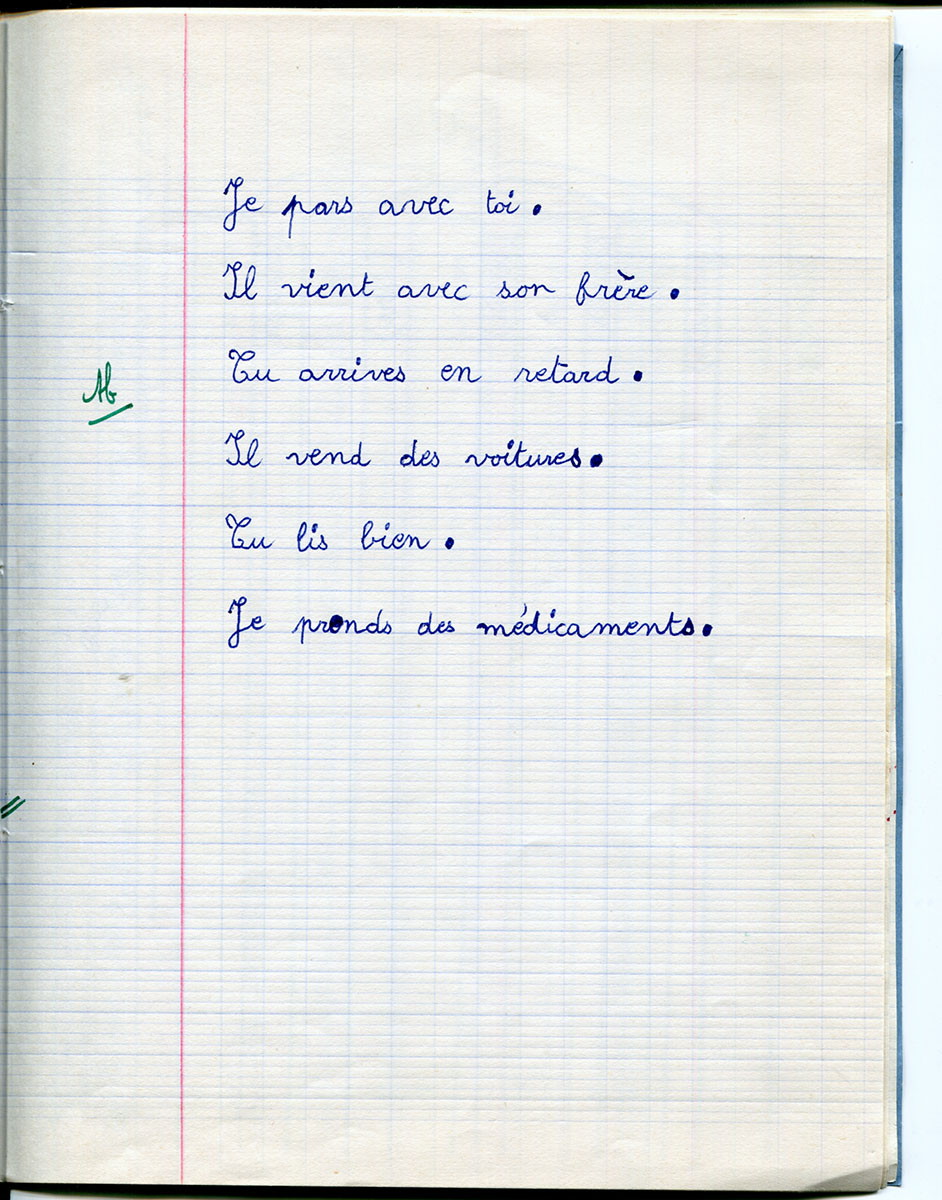 Je pars avec toi.
Il vient avec son frère.
Tu arrives en retard.
Ab
Il vend des voitures.
Tu lis bien.
Je prends des médicaments.